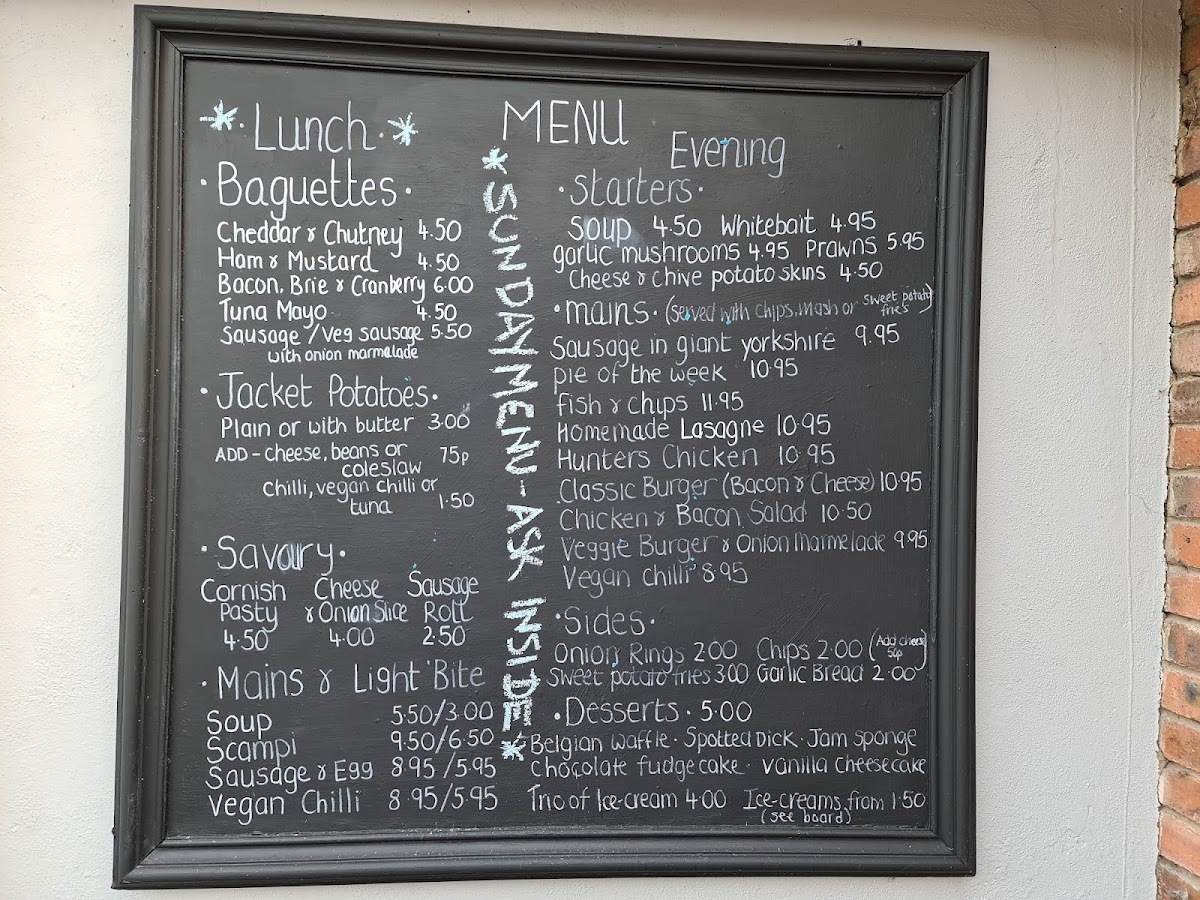 MENU
* Lunch *
· Baguettes ·
Cheddar & Chutney 4.50
Ham & Mustard 4.50
Bacon, Brie & Cranberry 6.00
Tuna Mayo 4.50
Sausage / Veg sausage 5.50
with onion marmalade
· Jacket Potatoes ·
Plain or with butter 3.00
ADD - cheese, beans or
coleslaw 75p
Chilli, vegan chilli or
tuna 1.50
· Savoury ·
Cornish Cheese Sausage
Pasty & Onion Slice Roll
4.50 4.00 2.50
· Mains & Light Bite
Soup 5.50/3.00
Scampi 9.50/6.50
Sausage & Egg 8.95/5.95
Vegan Chilli 8.95/5.95
*SUNDAY MENU - ASK INSIDE*
Evening
· Starters ·
Soup 4.50 Whitebait 4.95
garlic mushrooms 4.95 Prawns 5.95
Cheese & chive potato skins 4.50
· mains · (served with chips, mash or sweet potato
fries)
Sausage in giant yorkshire 9.95
pie of the week 10.95
fish & chips 11.95
Homemade Lasagne 10.95
Hunters Chicken 10.95
Classic Burger (Bacon & Cheese) 10.95
Chicken & Bacon Salad 10.50
Veggie Burger & Onion Marmelade 9.95
Vegan chilli 8.95
· Sides ·
Onion Rings 2.00 Chips 2.00 (Add cheese
50p)
Sweet potato fries 3.00 Garlic Bread 2.00
· Desserts · 5.00
Belgian waffle · Spotted Dick · Jam sponge
chocolate fudge cake · vanilla cheesecake
Trio of Ice-cream 4.00 Ice-creams from 1.50
(see board)